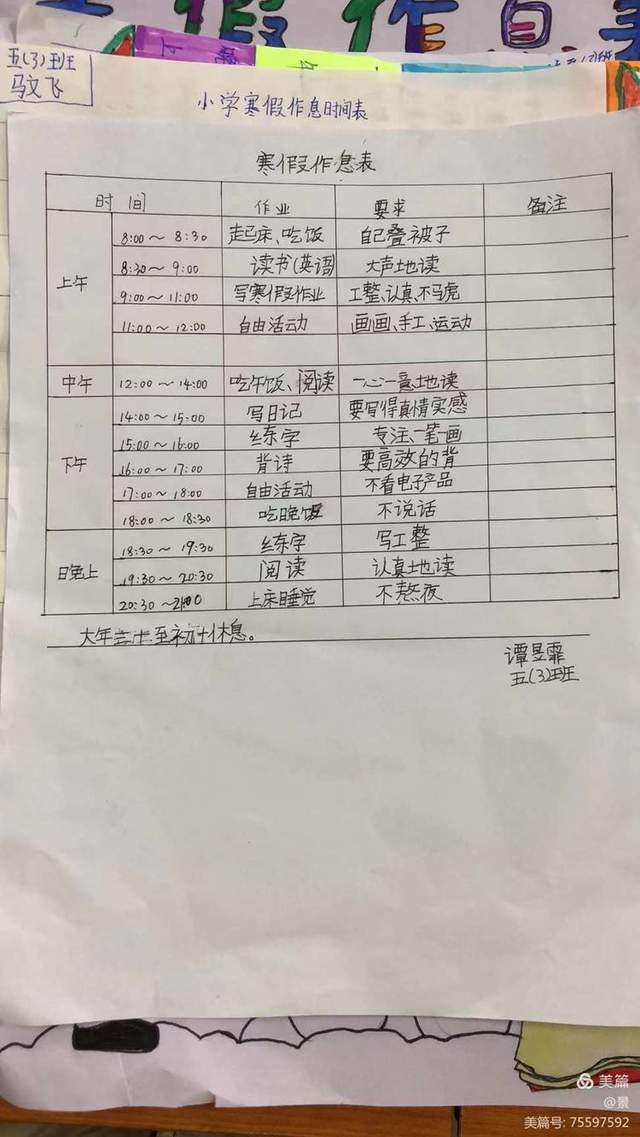 寒假作息表
五(3)班
马文飞
小学寒假作息时间表
寒假作息表
时间 作业 要求 备注
上午
8:00～8:30 起床、吃饭 自己叠被子
8:30～9:00 读书(英语) 大声地读
9:00～11:00 写寒假作业 工整、认真、不马虎
11:00～12:00 自由活动 画画、手工、运动
中午 12:00～14:00 吃午饭、阅读 一心一意地读
下午
14:00～15:00 写日记 要写得真情实感
15:00～16:00 练字 专注、一笔一画
16:00～17:00 背诗 要高效的背
17:00～18:00 自由活动 不看电子产品
18:00～18:30 吃晚饭 不说话
晚上
18:30～19:30 练字 写工整
19:30～20:30 阅读 认真地读
20:30～21:00 上床睡觉 不熬夜
大年三十至初十休息。
谭昱霏
五(3)班
美篇
@景
美篇号: 75597592